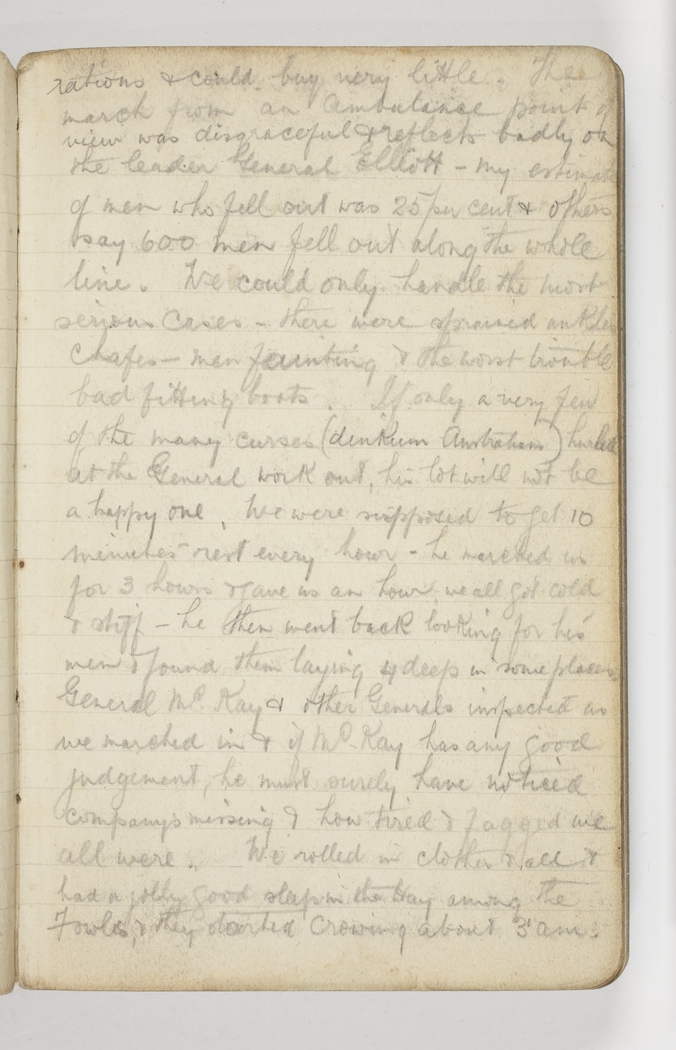 rations & could buy very little. The
march from an Ambulance point of
view was disgraceful & reflects badly on
the leader General Elliott - my estimate
of men who fell out was 25 per cent & others
say 600 men fell out along the whole
line. We could only handle the most
serious cases - there were sprained ankles
chafes - men fainting & the worst trouble
bad fitting boots. If only a very few
of the many curses (dinkum Australians) hurled
at the General work out, his lot will not be
a happy one. We were supposed to get 10
minutes rest every hour - he marched us
for 3 hours & gave us an hour, we all got cold
& stiff - he then went back looking for his
men & found them laying 4 deep in some places.
General McKay & other Generals inspected us
we marched in & if McKay has any good
judgement, he must surely have noticed
companys missing & how tired & fagged we
all were. We rolled in clothes & all &
had a jolly good sleep in the Hay among the
Fowls, & they started crowing about 3 am.